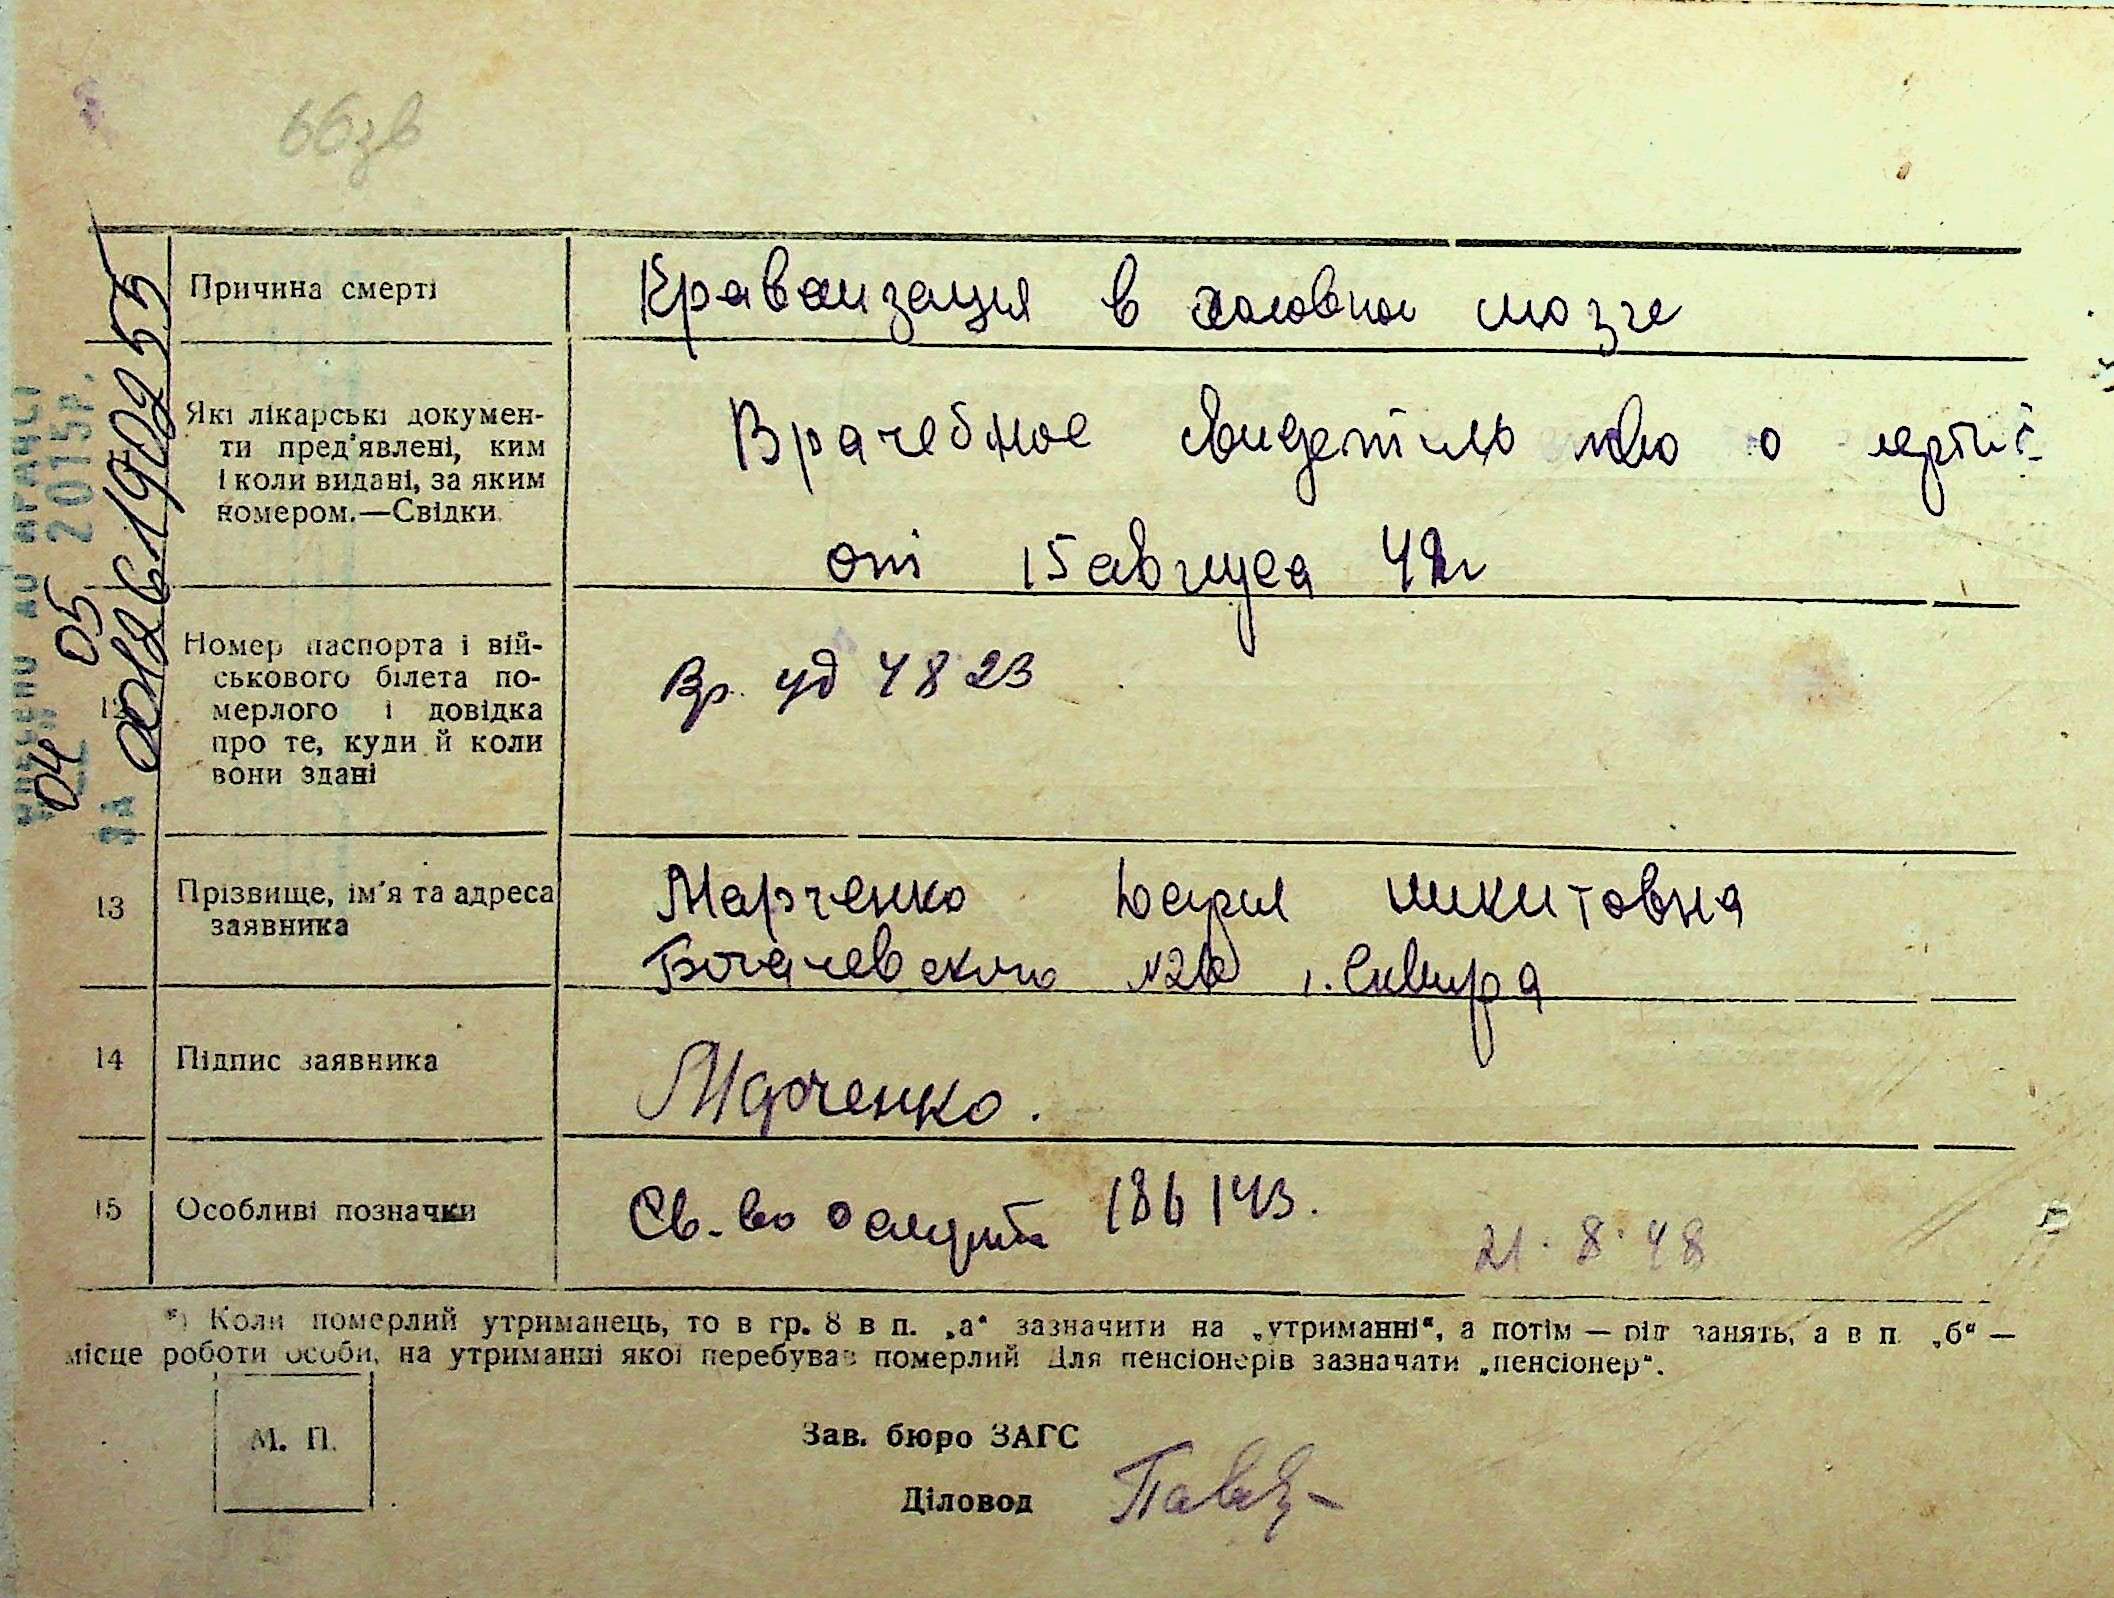 Причина смерті
Краваизация в головном мозге
Які лікарські докумен-
ти пред'явлені, ким
і коли видані, за яким
номером.—Свідки.
Врачебное
о
от 15 августа
12
Номер паспорта і вій-
ськового білета по-
мерлого і довідка
про те, куди й коли
вони здані
Вр. уд 4823
13
Прізвище, ім'я та адреса
заявника
Марченко никитовна
Богачевского г. Сквира
14
Підпис заявника
Марченко.
15
Особливі позначки
Св-во о 186143.
21.8.48
*) Коли померлий утриманець, то в гр. 8 в п. „а“ зазначити на „утриманні“, а потім — рід занять, а в п. „б“ —
місце роботи особи, на утриманні якої перебував померлий Для пенсіонерів зазначати „пенсіонер“.
М. П.
Зав. бюро ЗАГС
Діловод
2015р.
04 05
за
00126190255